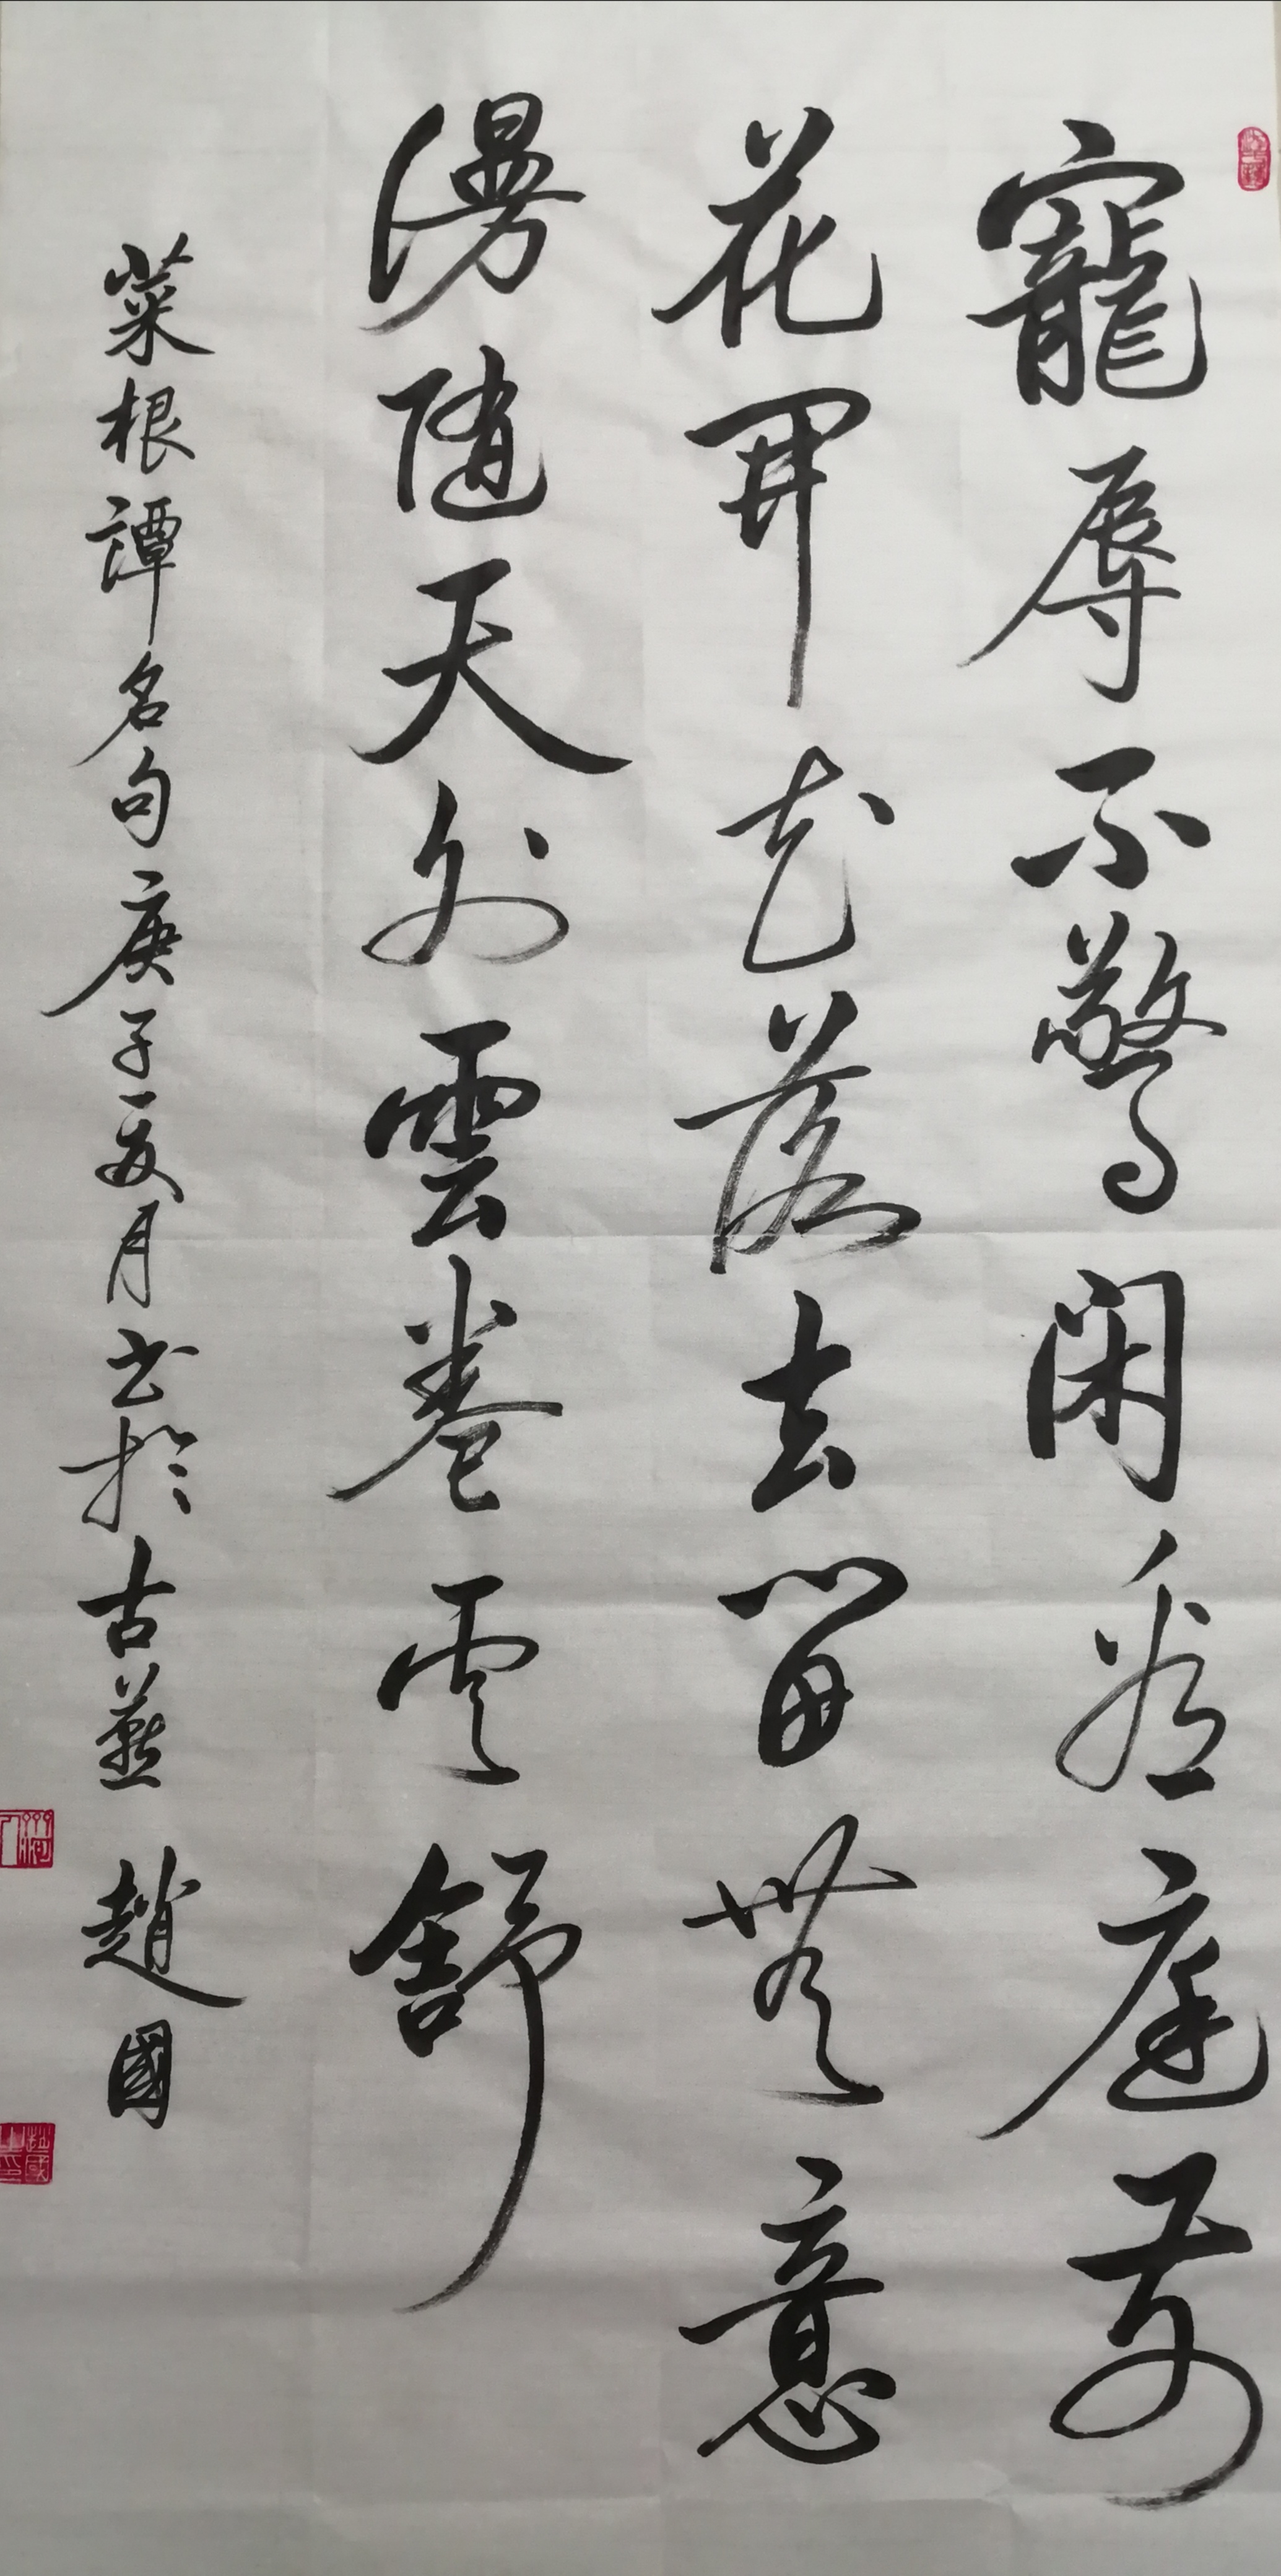 寵辱不驚閑看庭前
花開花落去留無意
漫隨天外雲卷雲舒
菜根譚名句庚子夏月書於古燕 趙國